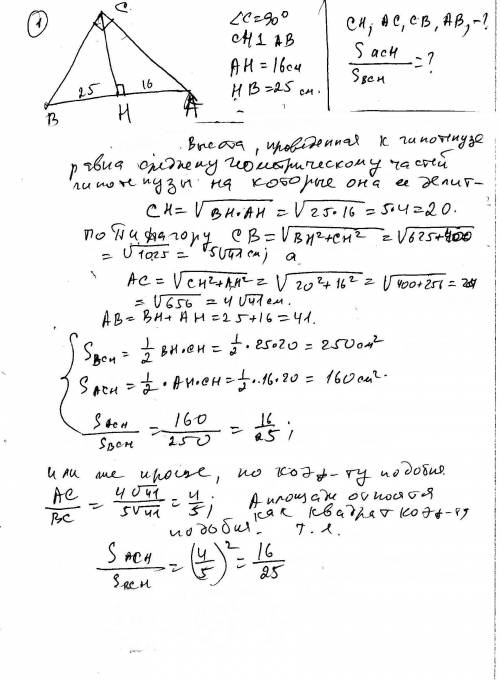 1
C
∠C=90°
CH⊥AB
AH=16см
HB=25 см.
CH, AC, CB, AB, -?
S ACH / S BCH = ?
25 16
B H A
Высота, проведенная к гипотенузе
равна среднему геометрическому частей
гипотенузы на которые она ее делит-
CH=√BH·AH=√25·16=5·4=20.
по Пифагору CB=√BH²+CH²=√625+400
=√1025=5√41 см; а
AC=√CH²+AH²=√20²+16²=√400+256=
=√656=4√41 см.
AB=BH+AH=25+16=41.
S BCH=1/2 BH·CH=1/2·25·20=250см²
S ACH=1/2·AH·CH=1/2·16·20=160см².
S ACH / S BCH = 160/250 = 16/25;
или же проще, по коэф-ту подобия.
AC/BC = 4√41/5√41 = 4/5; А площади относятся
как квадрат коэф-та
подобия. т.е.
S ACH / S BCH = (4/5)² = 16/25